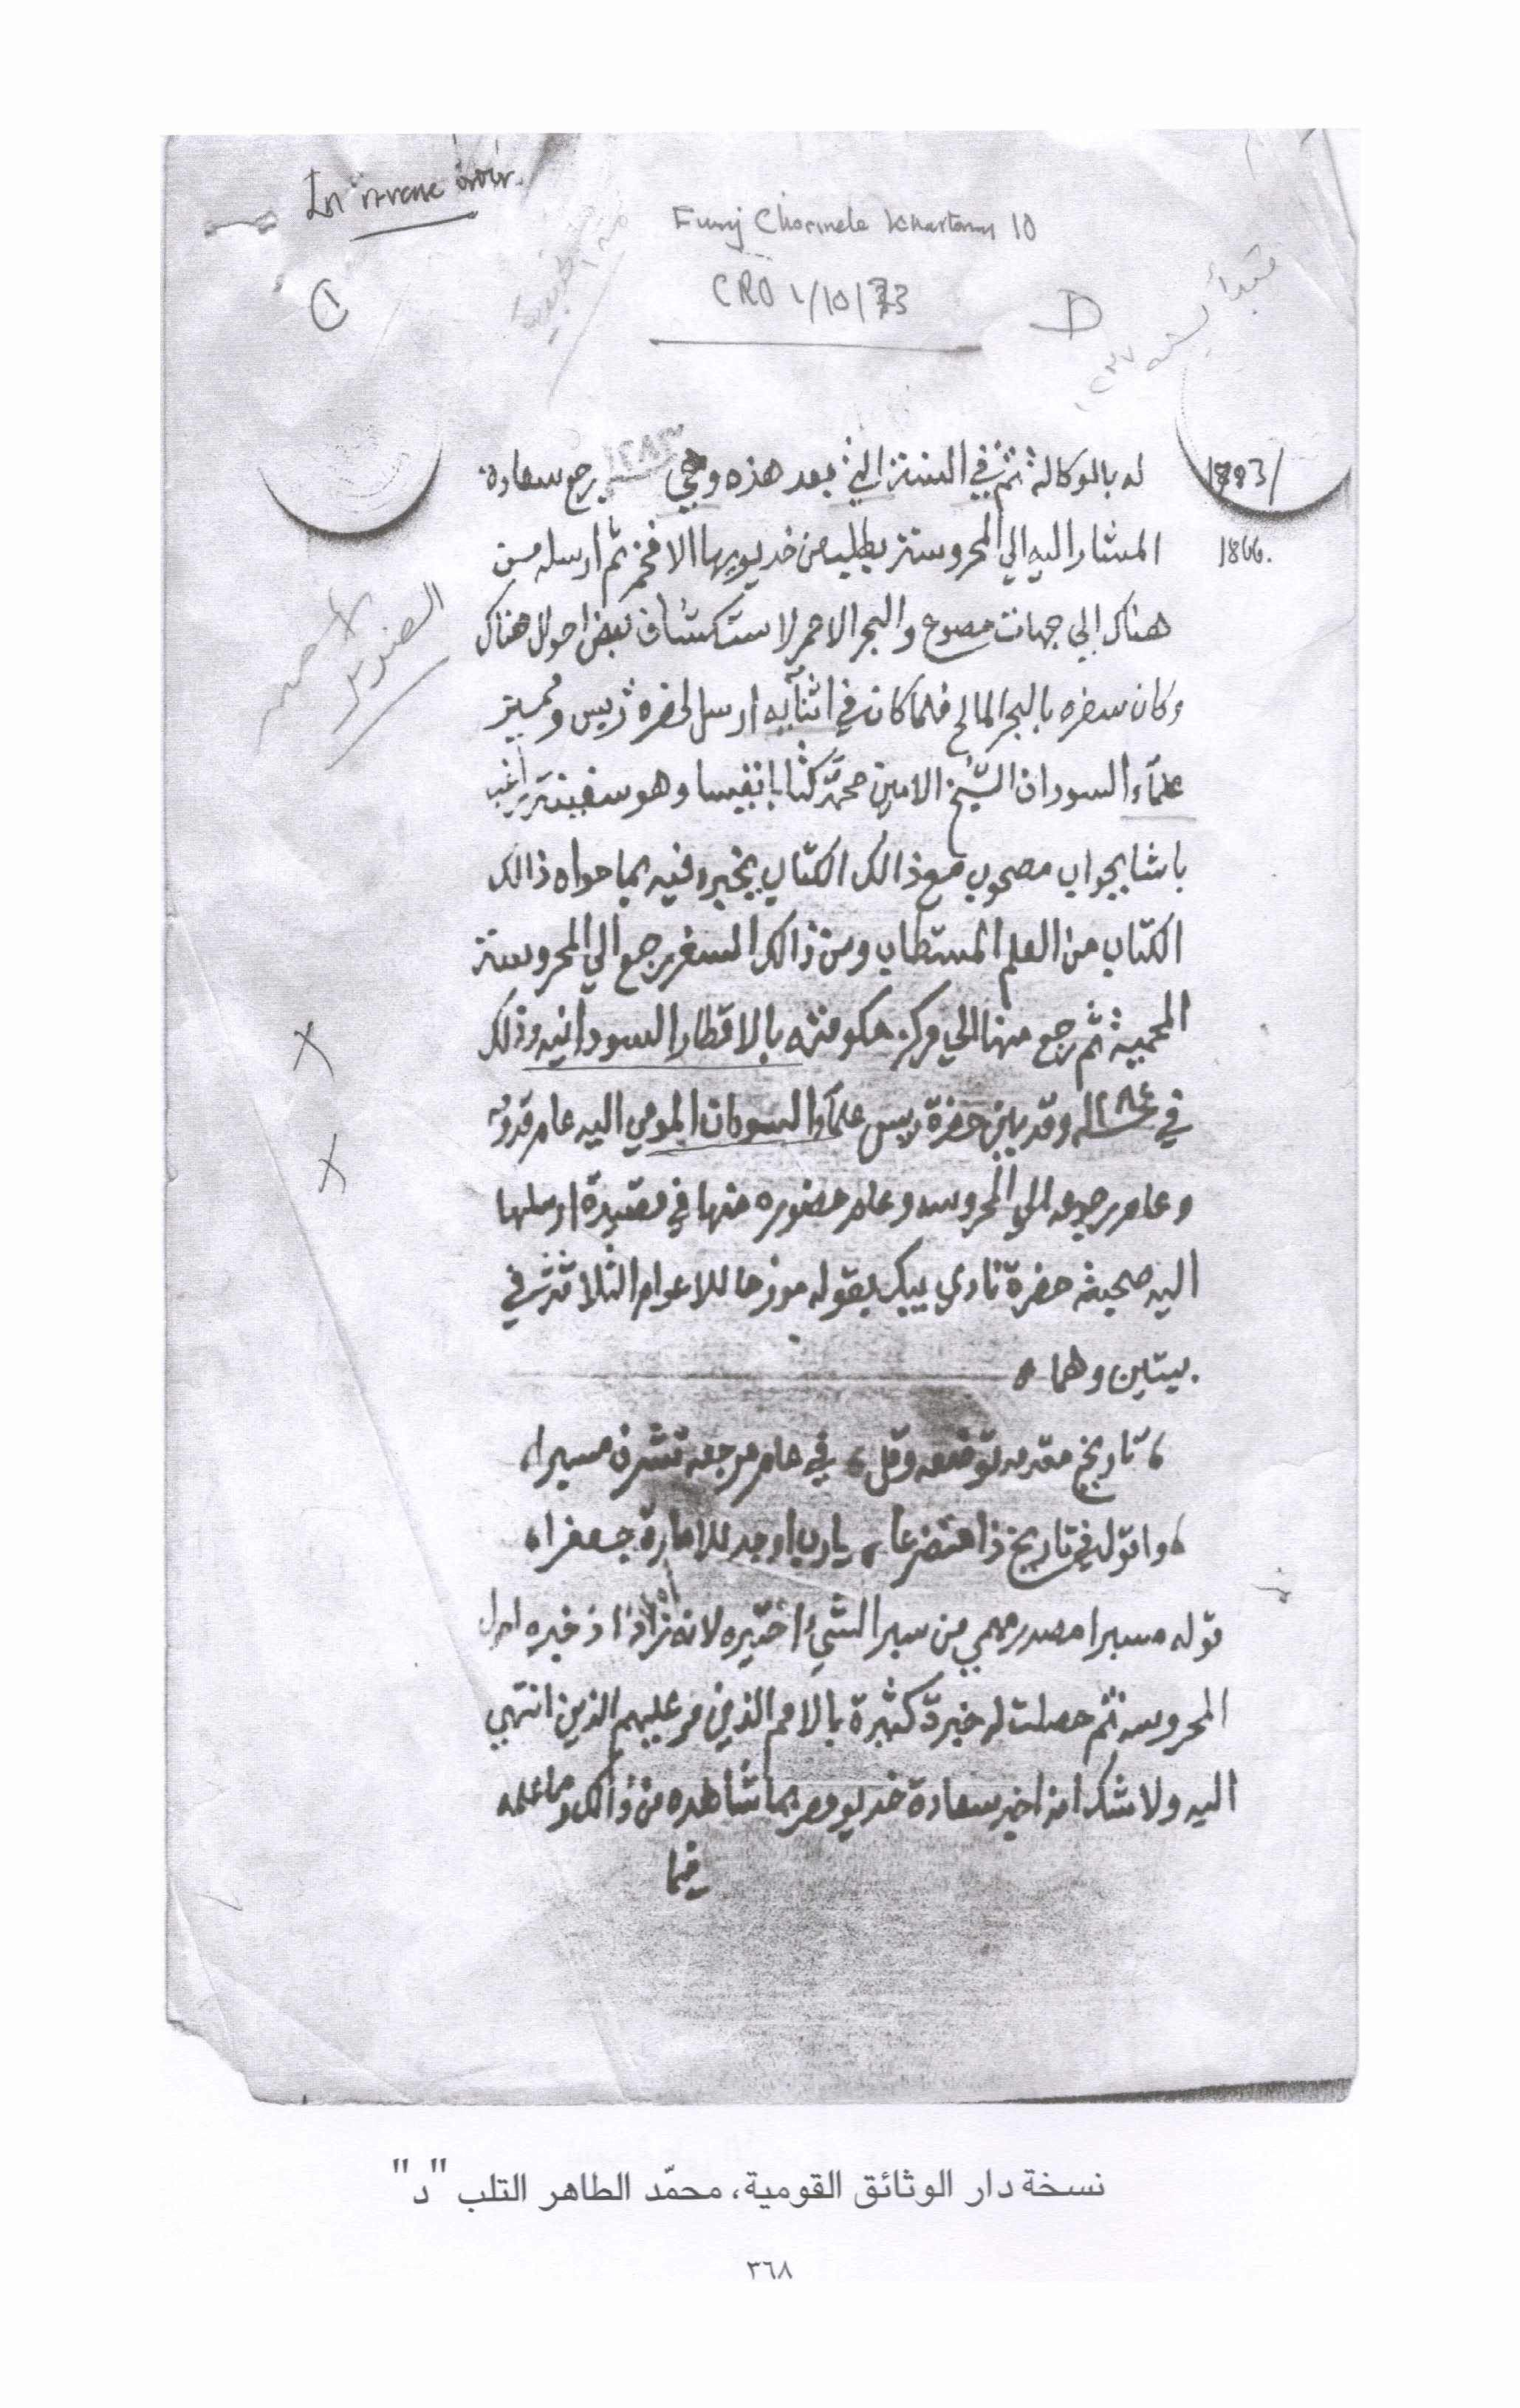 In reverse order.
Funj Chronicle Khartoum 10
CRO 1/10/73
D
له بالوكالة ثم في السنة التي بعد هذه وهي ١٢٨٣ رجع سعادة
1283/
المشار اليه الي المحروسة بطلب من خديويها الافخم ثم ارسله من
1866.
هناك الي جهات مصوع والبحر الاحمر لاستكشاف بعض احوال هناك
وكان سفره بالبحر المالح فلما كان في اثنآيه ارسل لحضرة رييس ومميز
علمآء السودان الشيخ الامين محمد كتابا نفيسا وهو سفينة راغب
باشا بجواب مصحوب مع ذالك الكتاب يخبره فيه بما حواه ذالك
الكتاب من العلم المستطاب ومن ذالك السفر رجع الي المحروسة
المحمية ثم رجع منها الي مركز حكومته بالاقطار السودانيه وذلك
في ١٢٨٤ له وقد بين حضرة رييس علمآء السودان المومي اليه عام قدومه
وعام رجوعه الي المحروسه وعام حضوره منها في قصيدة ارسلها
اليه صحبة حضرة نادي بيك بقوله مورخا للاعوام الثلاثة في
بيتين وهما ه
، تاريخ مقدمه توضعه وقل ، في عام مرجعه تشرف مسبرا ،
، واقوله في تاريخ ذا متضرعا ، يارب اوجد للامارة جعفرا ،
قوله مسبرا مصدر ميمي من سبر الشيء اختبره لانه زاد اذ خبره اهل
المحروسه ثم حصلت له خبرة كثيرة بالامم الذين مر عليهم الذين انتهي
اليه ولا شك انه اخبر سعادة خديو مصر بما شاهده من ذالك وما علمه
فيما
نسخة دار الوثائق القومية، محمّد الطاهر التلب "د"
٣٦٨